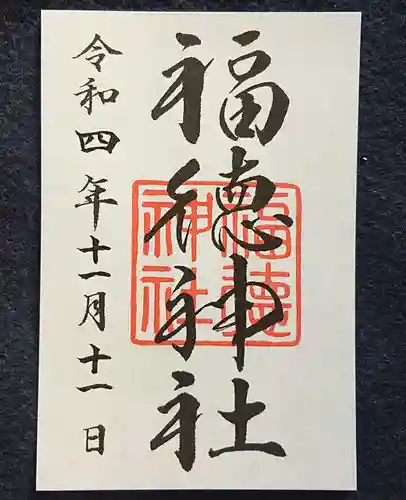 福徳神社
令和四年十一月十一日
福徳
神社